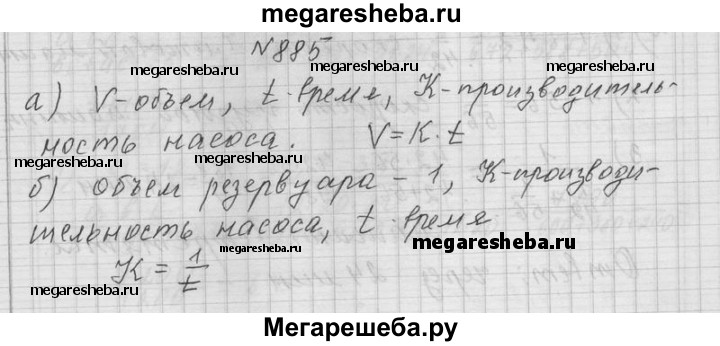 megaresheba.ru
№885
megaresheba.ru megaresheba.ru
а) V-объем, t-время, К-производитель-
ность насоса. V=К·t
megaresheba.ru megaresheba.ru
б) объем резервуара - 1, К-производи-
тельность насоса, t-время
megaresheba.ru megaresheba.ru
К = 1/t
megaresheba.ru megaresheba.ru
Мегарешеба.ру